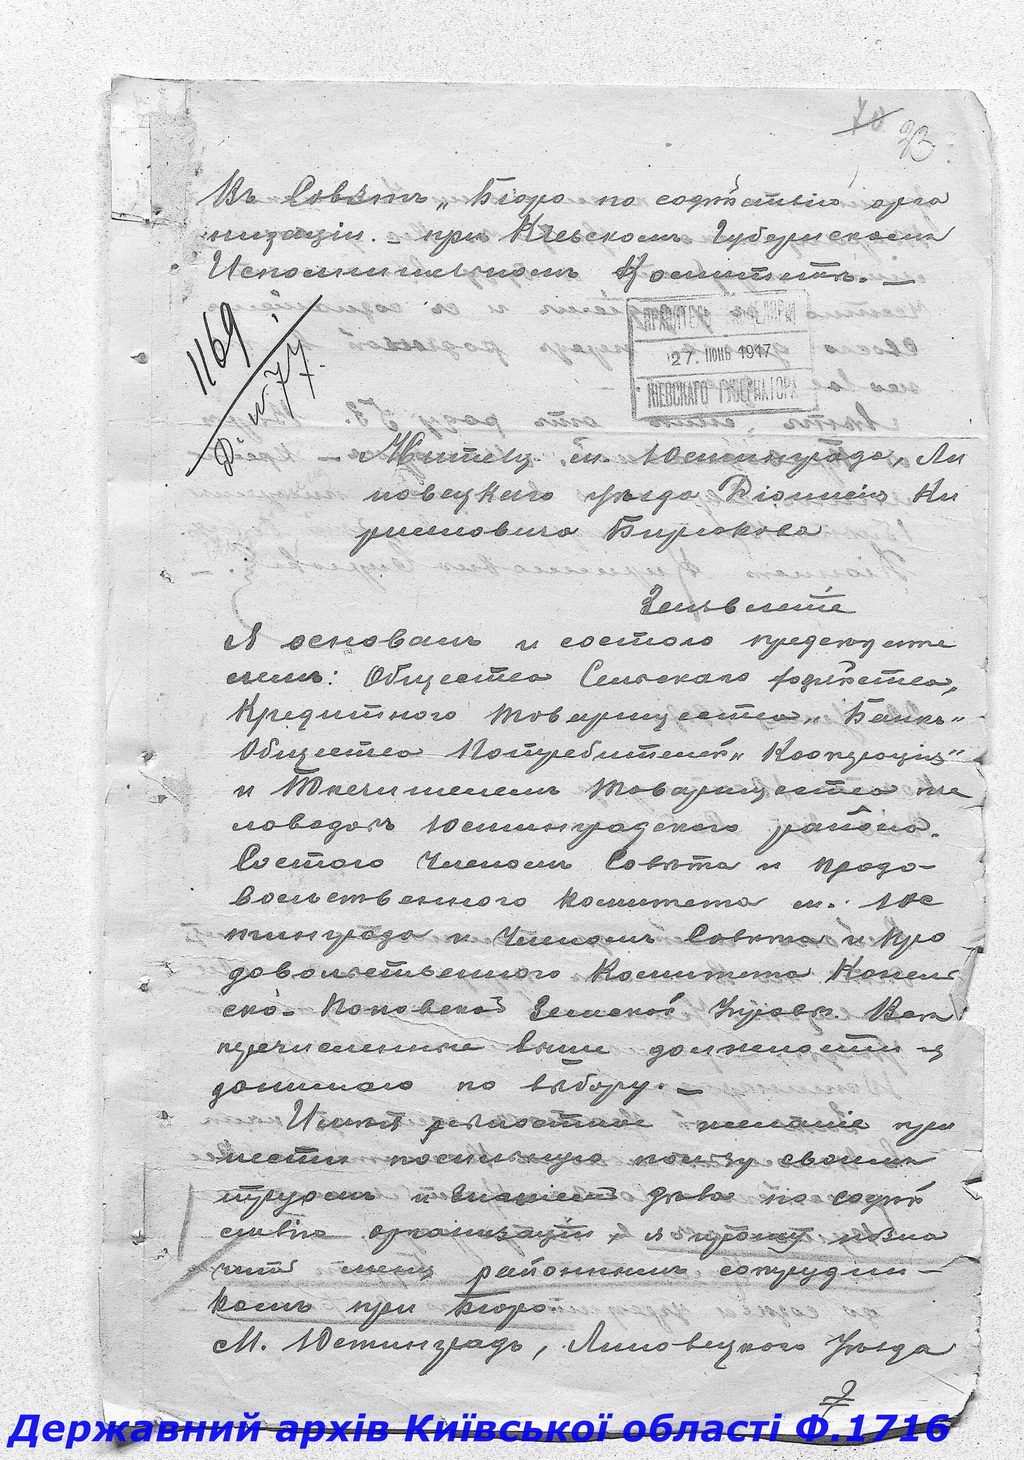 70 23
Въ Совѣтъ „Бюро по содѣйствію орга
низаціи. – при Кіевскомъ Губернскомъ
Исполнительномъ Комитетѣ. –
27. ИЮНЬ 1917
КІЕВСКАГО ГУБЕРНАТОРА
1169
Д. № 77.
Жителя м. Юстинграда, Ли
повецкаго уѣзда Діонисія Ки
рилловича Бирюкова
Заявленіе
Я основалъ и состою предсѣдате
лемъ: Общества Сельскаго хозяйства,
Кредитного товарищества „Банкъ"
Общества Потребителей „Кооперація"
и товарищества
Юстинградского района.
Состою Членомъ Совѣта и продо–
вольственного комитета м. Юс
тинграда и Членомъ Совѣта и про
довольственного Комитета Конель
ско– Поповской Земской Управы. Всѣ
перечисленные выше должности я
занимаю по выбору. –
Имѣя желаніе при
нести посильную пользу своимъ
трудомъ и знаніемъ дѣла по содѣй
ствію организаціи, я прошу назна
чить меня районнымъ сотрудни–
комъ при Бюро.
М. Юстинградъ, Липовецкого Уѣзда
7
Державний архів Київської області Ф.1716